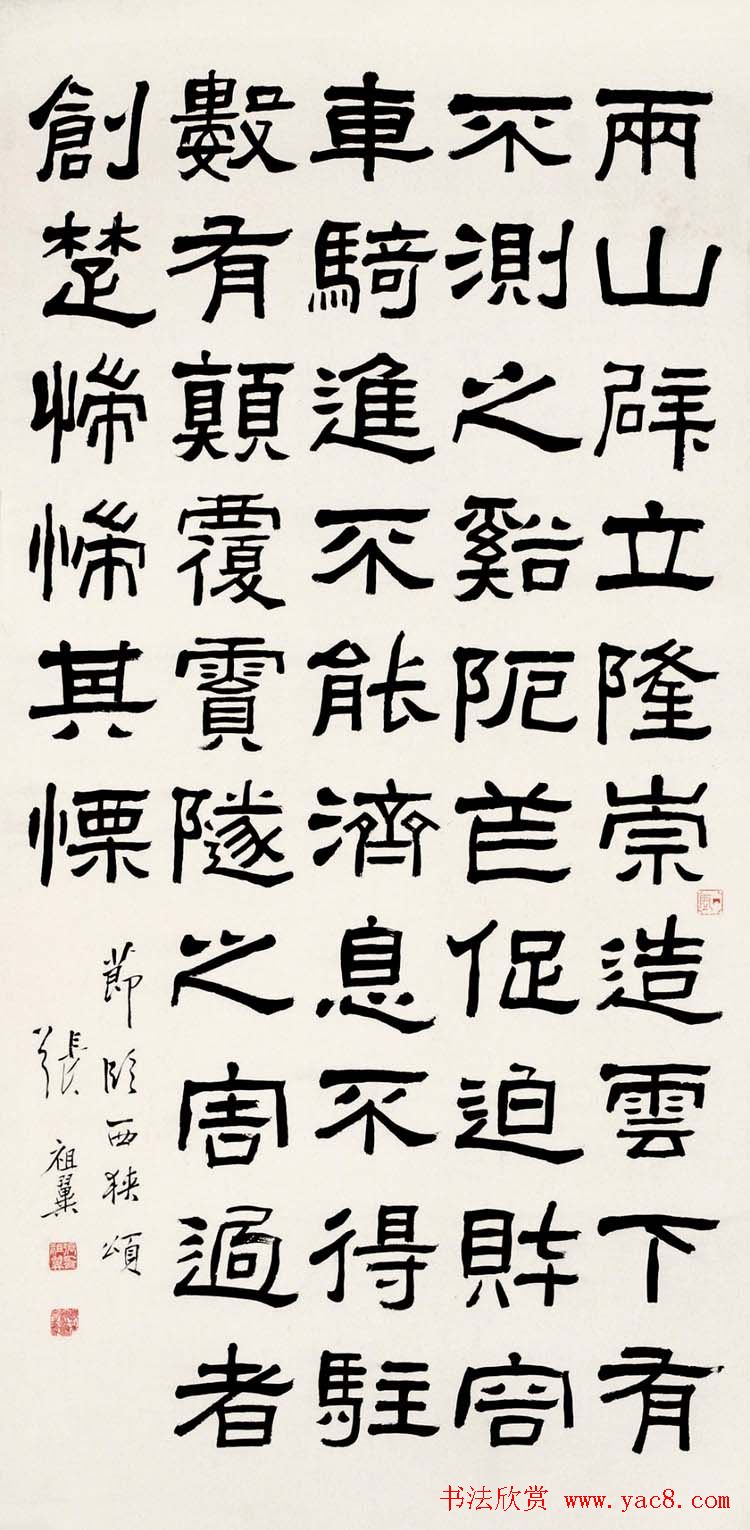 兩山辟立隆崇造雲下有
不測之谿阨芒促迫財容
車騎進不能濟息不得駐
數有顛覆霣隧之害過者
創楚惴惴其慄
節臨西狹頌
張祖翼
书法欣赏 www.yac8.com